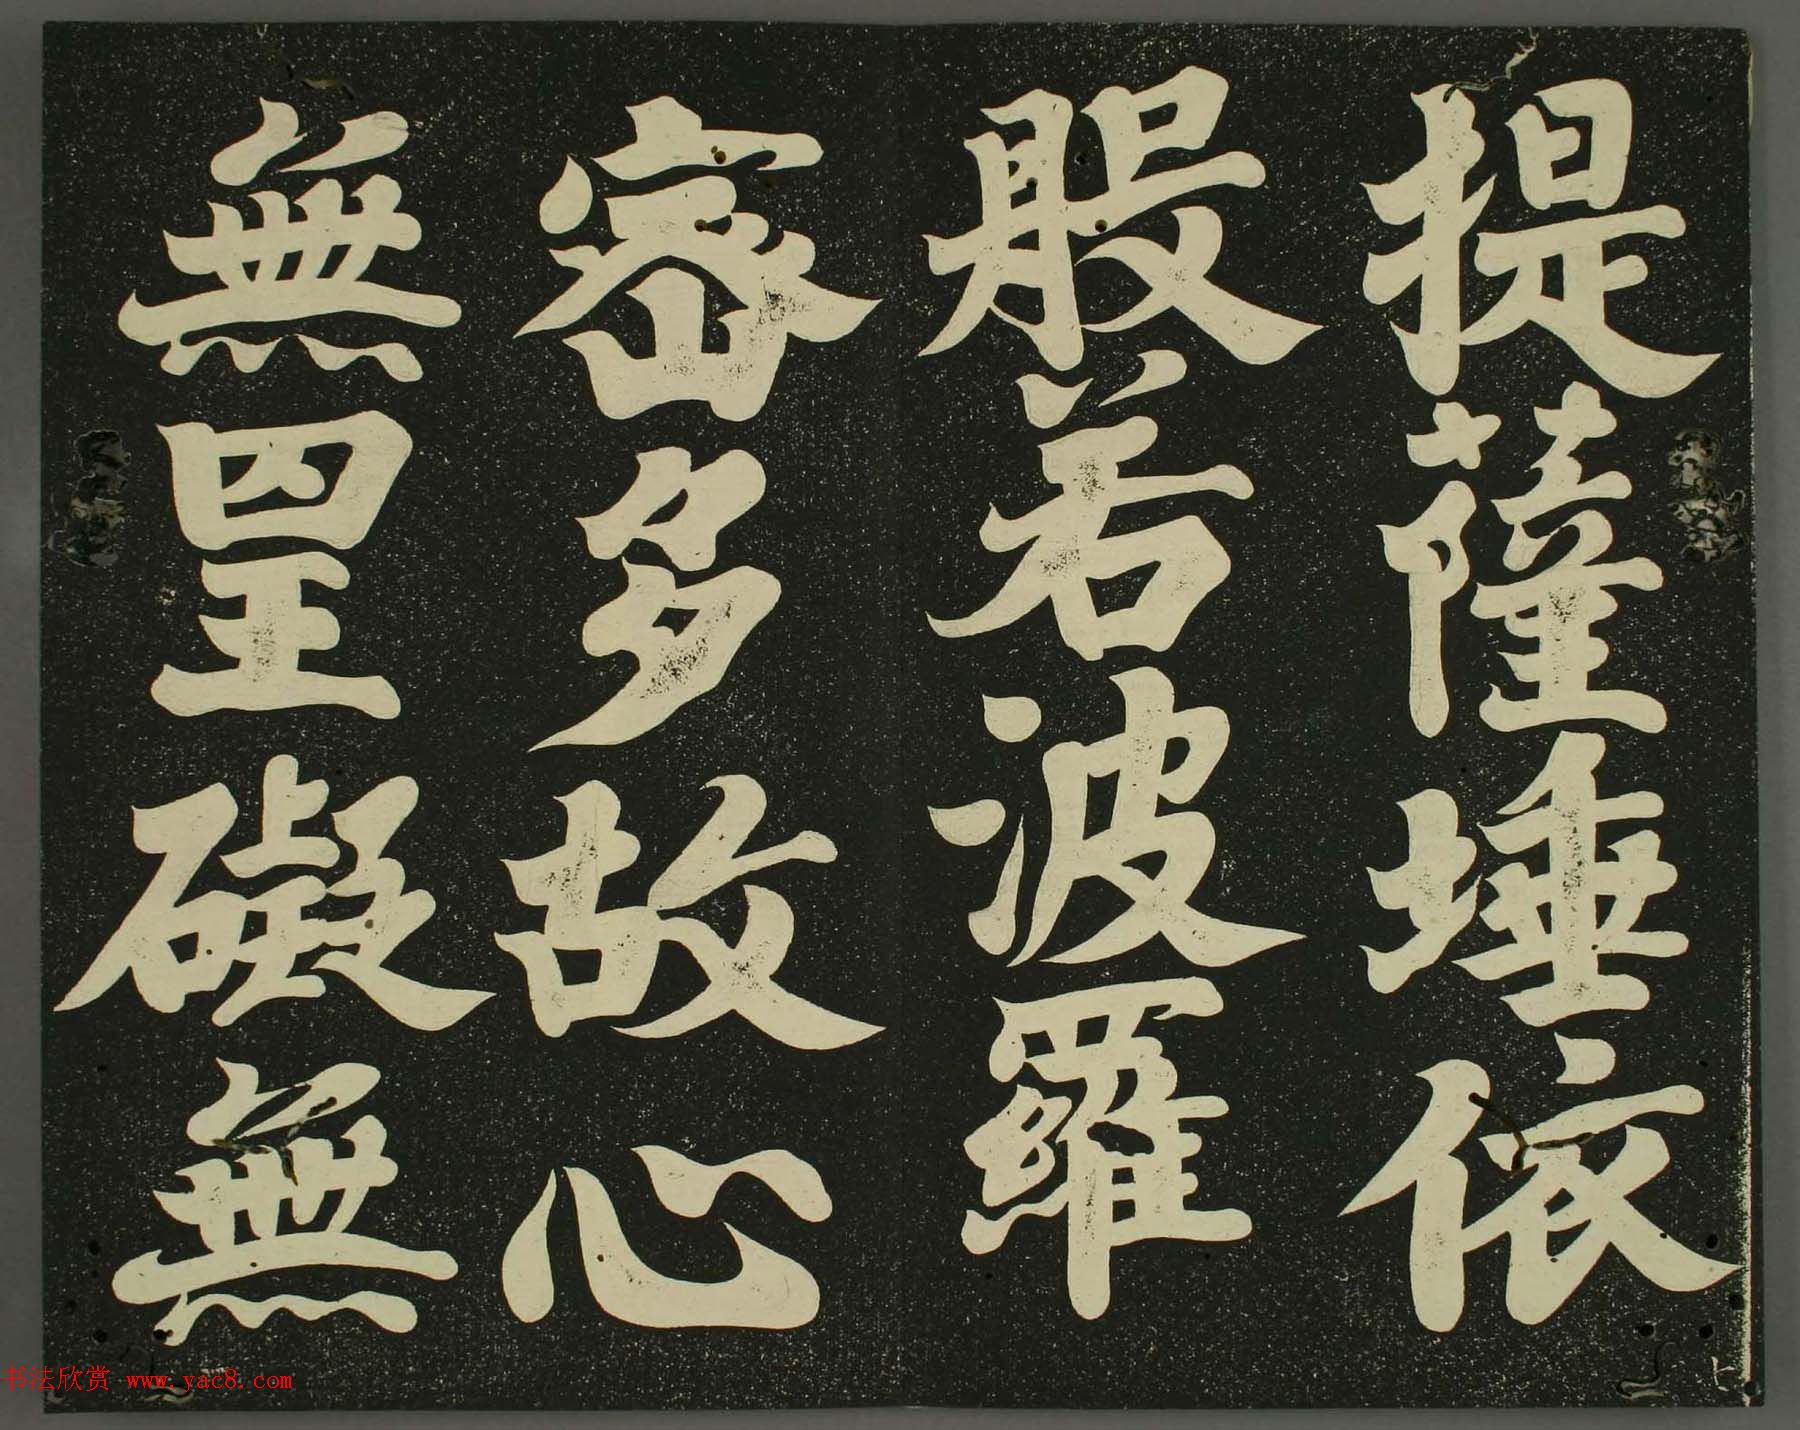 提薩埵依
般若波羅
密多故心
無罣礙無
书法欣赏 www.yac8.com